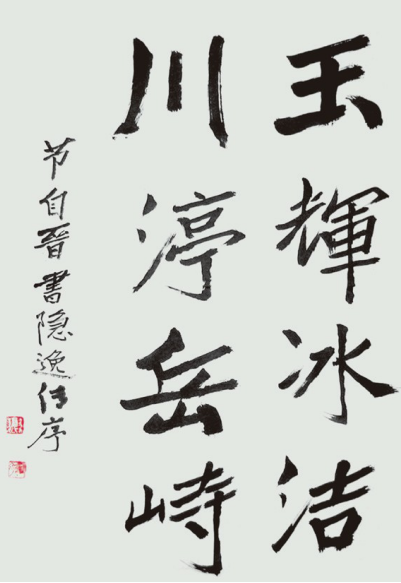 玉輝冰洁
川渟岳峙
节自晋書隐逸传序